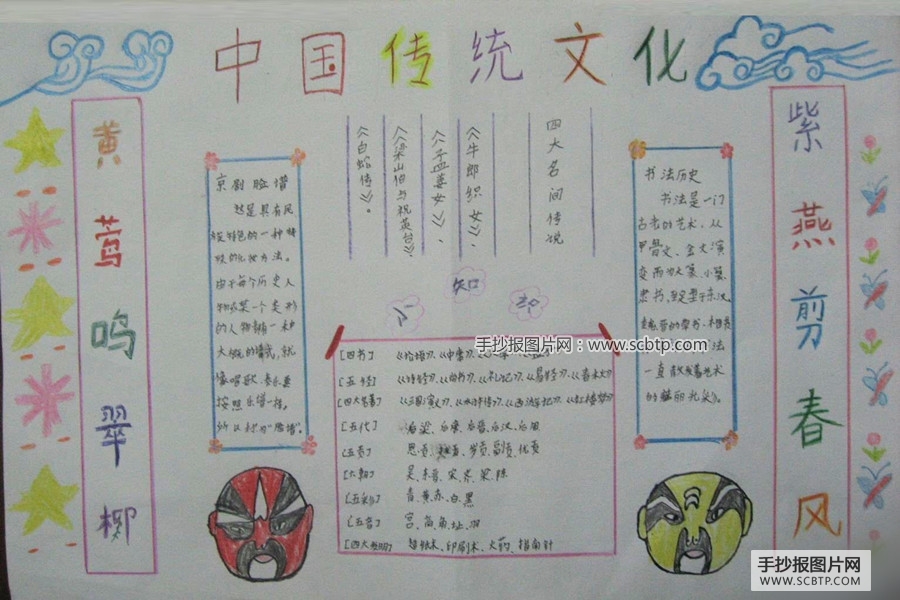 中国传统文化
黄莺鸣翠柳
紫燕剪春风
京剧脸谱
然是具有民
族特色的一种特
由于每个历史人
物或某一个类形
的人物都有一种
大概的谱式，就
像唱歌、奏乐要
按照乐谱一样，
所以称为“脸谱”。
四大名间传说
《牛郎织女》、
《孟姜女》、
《梁山伯与祝英台》、
《白蛇传》。
书法历史
书法是一门
古老的艺术，从
甲骨文、金文演
变而为大篆、小篆、
隶书，
一直散发着艺术
的
小知识
手抄报图片网：www.scbtp.com
[四书]《论语》、《中庸》、
[五经]《诗经》、《尚书》、《礼记》、《易经》、《春秋》
[四大名著]《三国演义》、《水浒传》、《西游记》、《红楼梦》
[五代]后梁、后唐、后晋、后汉、后周
[六朝]吴、东晋、宋、齐、梁、陈
[五彩]青、黄、赤、白、黑
[五音]宫、商、角、址、羽
[四大发明]造纸术、印刷术、火药、指南针
手抄报图片网
WWW.SCBTP.COM